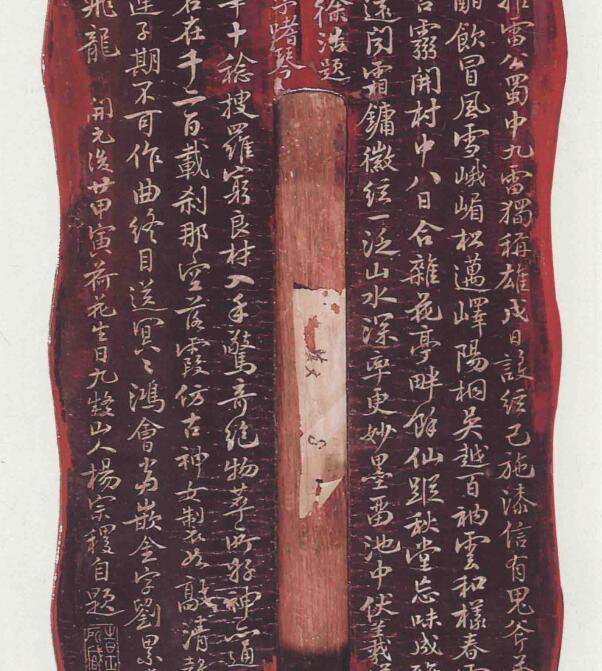 雷公蜀中九雷獨稱雄戊日設弦己施漆信有鬼斧
酣飲冒風雪峨嵋松邁嶧陽桐吳越百衲雲和樣春
開村中八日合雜花亭畔餘仙蹤秋堂忘味成
遠聞霜鏞徽弦一泛山水深率更妙墨留池中伏羲
徐浩題
嗜琴
十稔搜羅窮良材入手驚奇絕物萃所好神亦通
在千二百載剎那空落霞仿古神女製敲清
子期不可作曲終目送冥〻鴻會當嵌金字劉累
飛龍 開元後廿甲寅荷花生日九嶷山人楊宗稷自題